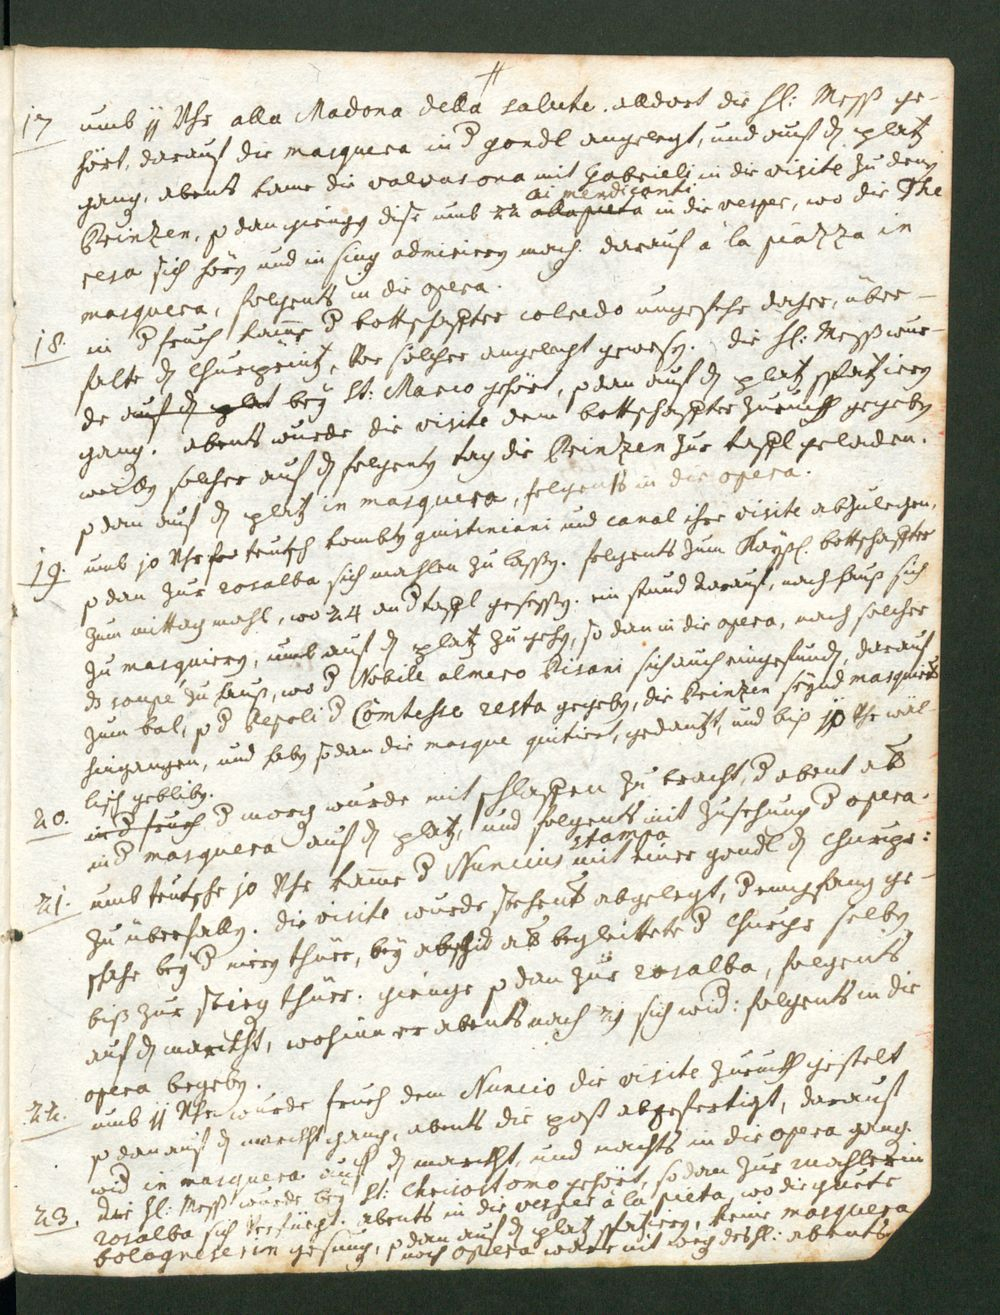 #
17 umb 11 Uhr alla Madona della salute. alldort die Hl: Meß ge-
hört, darauf die masquera in d gondl angelegt, und auf dn platz
gang, abents kame die valvasona mit Gabrieli in die visite zu denen
ai mendicanti
Prinzen, so dan gienge dise umb 22 alla pieta in die vesper, wo die The
resa sich hören und in sing admiriren mach. darauf à la piazza in
masquera, folgents in die opera.
18. in d fruh kame d bottschaffter coloredo ungefehr daher, über-
falte dn Churprintz, Vor solcher angelegt gewesen. die Hl: Meß wur-
de auf dn plat bey St: Marco gehört, so dan auf dn platz spatziren
gang. abents wurde die visite dem bottschaffter zuruckh gegeben
weillen solcher auf dn folgenten tag die Prinzen zur taffl geladen.
so dan auf dn platz in masquera, folgents in die opera.
19. umb 10 Uhr teutsch kombten giustiniani und canal ihre visite abzulegen,
so dan zur rosalba sich mahlen zu lassen. folgents zum Kaysl. bottschaffter
zum mittag mahl, wo 24 an d taffl gesessen. ein stund darauf, nach hauß sich
zu masquiren, umb auf dn platz zu gehen, so dan in die opera, nach solcher
ds soupé zu hauß, wo d Nobile almoro Pisani sich auch eingefunden, darauf
zum bal, so d Pepoli d Comtesse resta gegeben, die Prinzen seynd masquirts
hingangen, und haben so dan die masque quitiert, gedantzt, und biß 10 Uhr wäl-
lisch gebliben.
20. in d fruh d morgen wurde mit schlaffen zu bracht, d abent ab
in d masquera auf dn platz, und folgents mit zusehung d opera.
stampa
21. umb teutsche 10 Uhr kame d Nuncius mit einer gondl dn Churpr:
zu überfallen. die visite wurde stehent abgelegt, d empfang ge-
schahe bey d thüre, bey abschid ab begleittete d Churpr selben
biß zur stieg thüre. gienge so dan zur rosalba, folgents
auf dn marckht, wohinn er abents nach 21 sich wid: folgents in die
opera begeben.
22. umb 11 Uhr wurde fruh dem Nuncio die visite zuruckh gestelt
so dan auf dn marckht gang, abents die post abgefertigt, darauf
wid in masquera auf dn marckht, und nachts in die opera gang.
23. die Hl: Meß wurde bey St: Chrisostomo gehört, so dan zur mahlerin
rosalba sich verfüegt. abents in die vesper à la pieta, wo die guete
bologneserin gesungen, so dan auf dn platz spatziren, keine masquera
noch opera ware mit weg des hl: abents